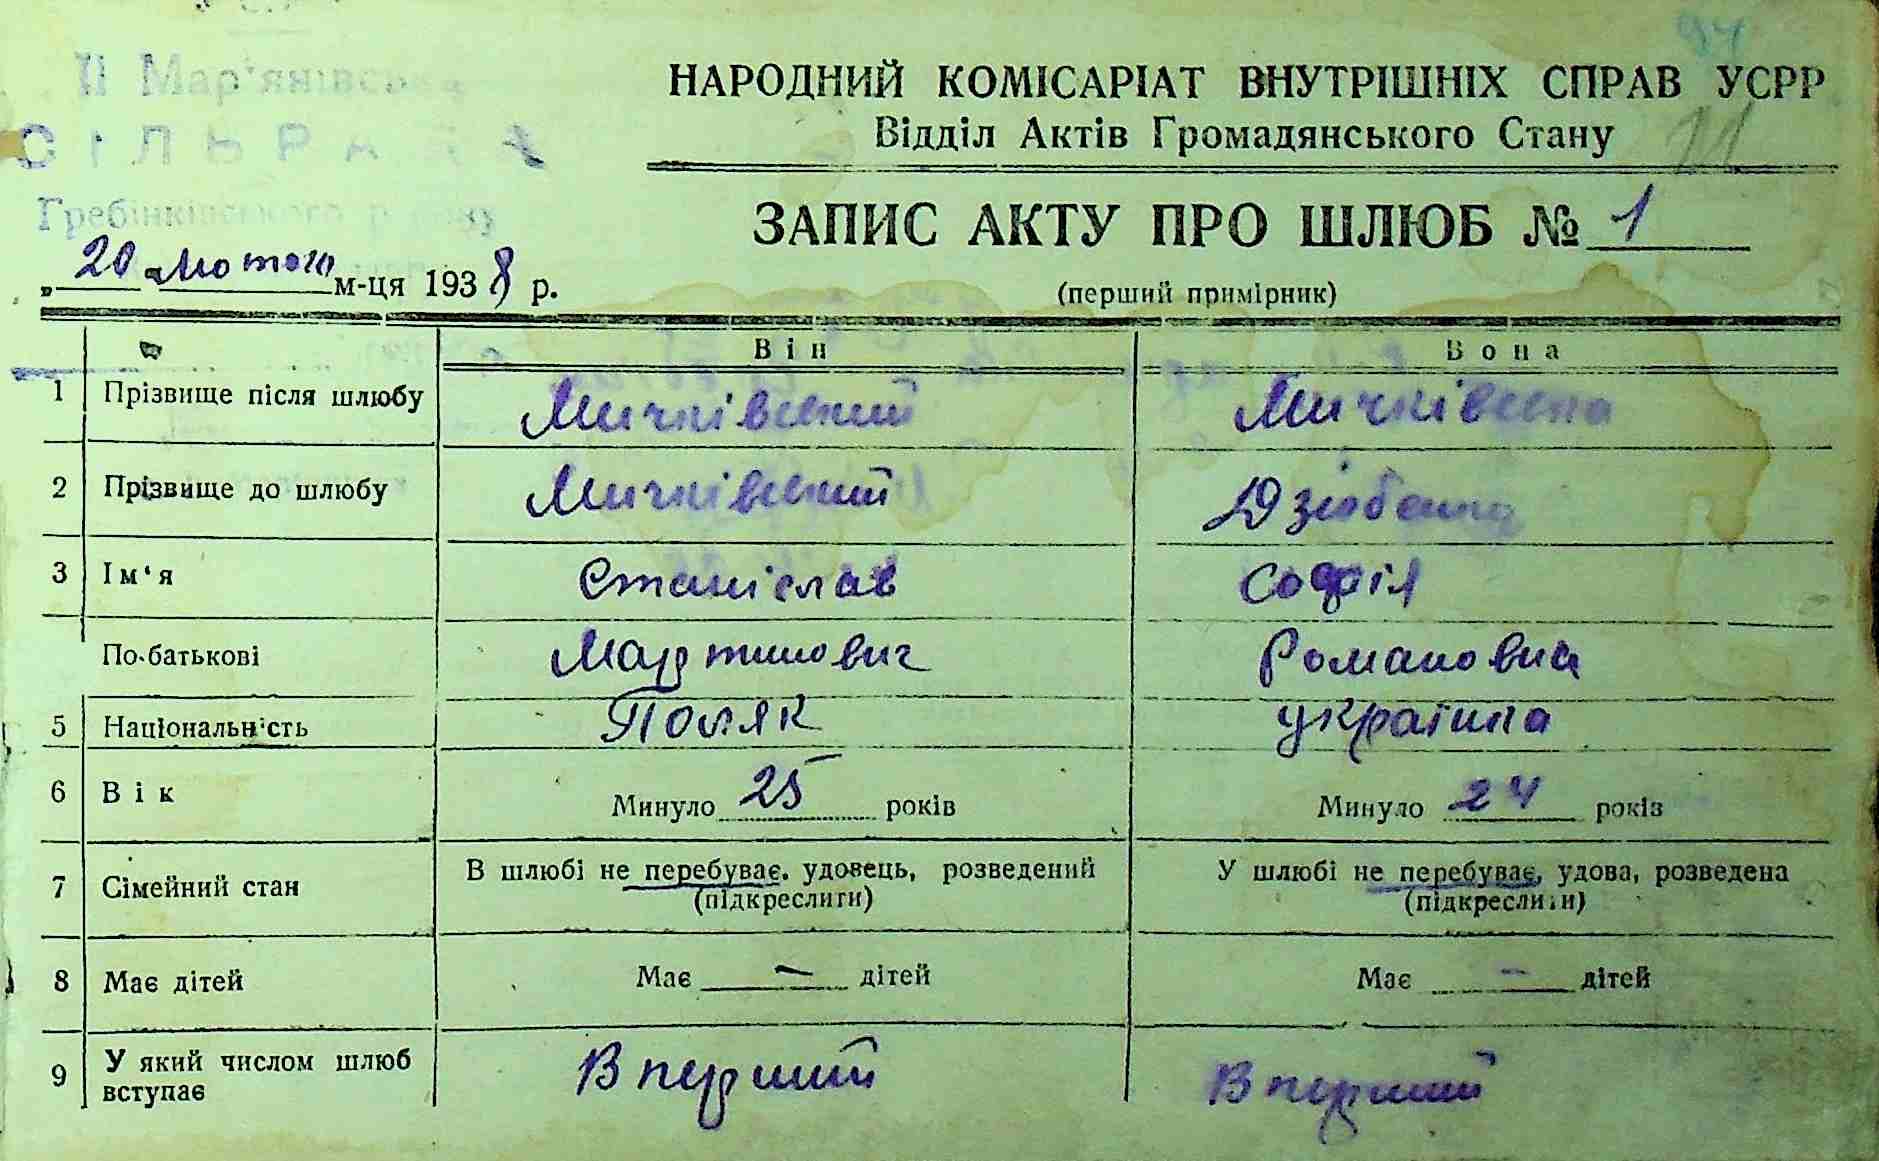 ІІ Мар'янівська
СІЛЬРАДА
Гребінківського району
94
11
НАРОДНИЙ КОМІСАРІАТ ВНУТРІШНІХ СПРАВ УСРР
Відділ Актів Громадянського Стану
ЗАПИС АКТУ ПРО ШЛЮБ № 1
(перший примірник)
„20 Лютого м-ця 1938 р.
Він Вона
1 Прізвище після шлюбу Мичківський Мичківська
2 Прізвище до шлюбу Мичківський Дзюбенко
3 Ім‘я Станіслав Софія
По-батькові Мартинович Романовна
5 Національність Поляк україпка
6 Вік Минуло 25 років Минуло 24 років
7 Сімейний стан В шлюбі не перебуває. удовець, розведений У шлюбі не перебуває, удова, розведена
(підкреслити) (підкреслити)
8 Має дітей Має — дітей Має — дітей
9 У який числом шлюб вступає Вперший Вперший